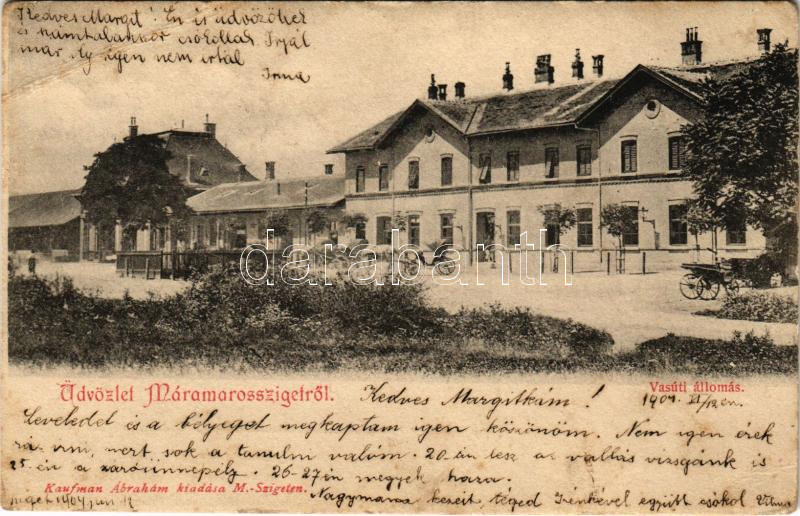 Kedves Margit! Én is üdvözöllek
és számtalanszor csókollak Irjál
már oly igen nem irtál
Irma
darabanth
Üdvözlet Máramarosszigetről.
Vasúti állomás.
Kedves Margitkám! 1904. VI/12 én.
Leveledet és a bélyeget megkaptam igen köszönöm. Nem igen érek
rá irni, mert sok a tanulni valóm. 20-án lesz a vallás vizsgánk is
25-én a záróünnepély. 26-27-én megyek haza.
Kaufman Ábrahám kiadása M.-Szigeten.
Nagymama kezeit, téged Irénkével együtt csókol
Sziget 1904 jun 12